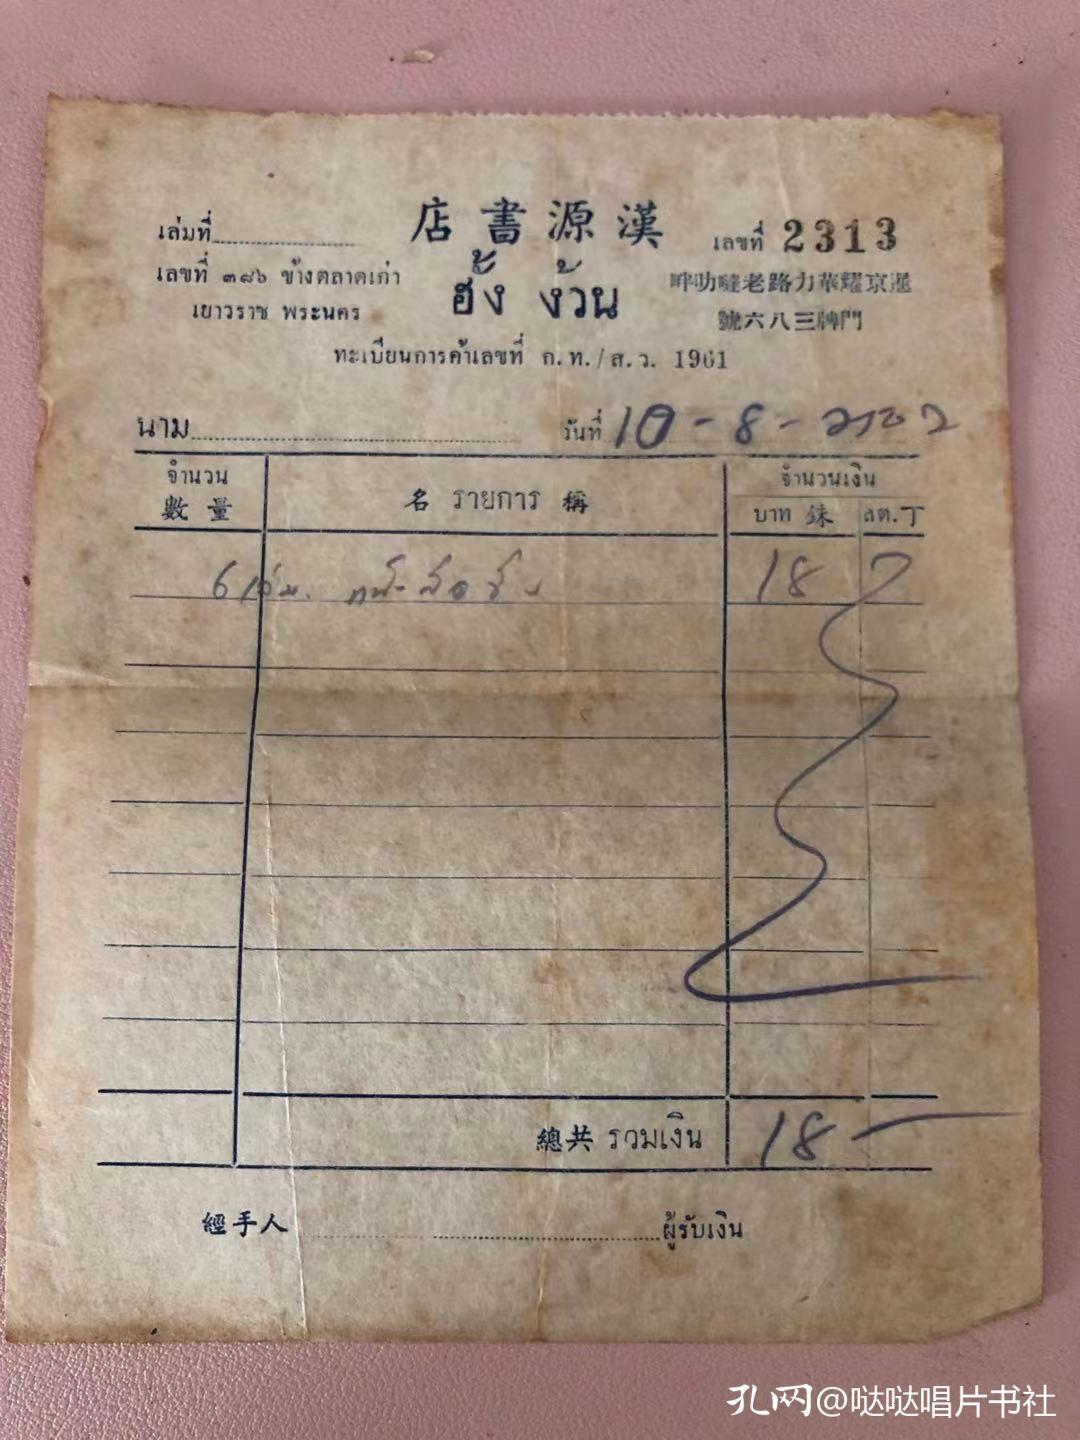 店書源漢
เล่มที่
เลขที่ 2313
เลขที่ ๓๘๖ ข้างตลาดเก่า
ฮั้ง ง้วน
畔叻噠老路力華耀京暹
เยาวราช พระนคร
號六八三牌門
ทะเบียนการค้าเลขที่ ก.ท./ส.ว. 1961
นาม
วันที่ 10-8-2502
จำนวน
數量
名 รายการ 稱
จำนวนเงิน
บาท 銖
สต. 丁
6 เล่ม
18
總共 รวมเงิน 18
經手人
ผู้รับเงิน
孔网@哒哒唱片书社